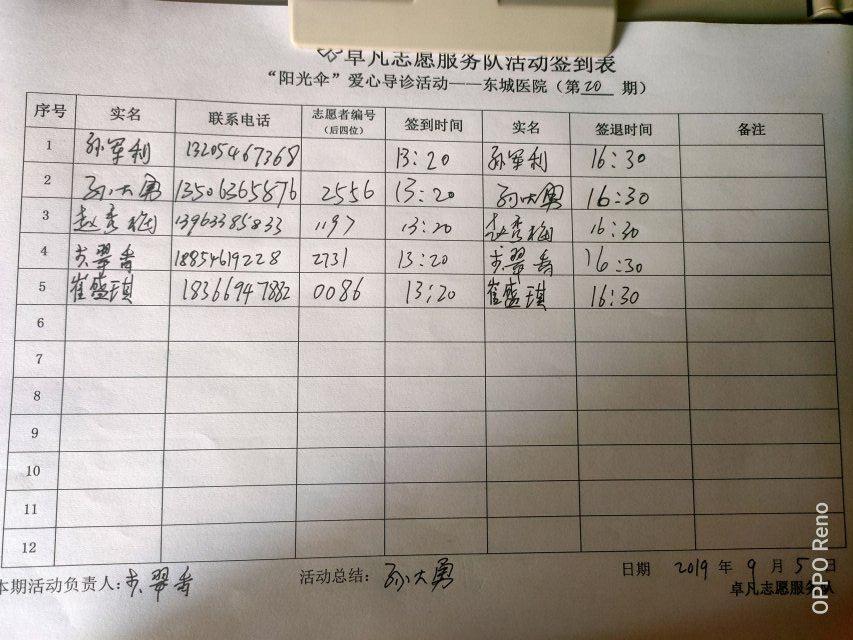 卓凡志愿服务队活动签到表
“阳光伞”爱心导诊活动——东城医院（第 20 期）
序号 实名 联系电话 志愿者编号（后四位） 签到时间 实名 签退时间 备注
1 孙军利 13205467368 13:20 孙军利 16:30
2 孙大勇 13506365876 2556 13:20 孙大勇 16:30
3 赵秀梅 13963385833 1197 13:20 赵秀梅 16:30
4 翠香 18854619228 2731 13:20 翠香 16:30
5 崔盛琪 18366947882 0086 13:20 崔盛琪 16:30
6
7
8
9
10
11
12
本期活动负责人：翠香 活动总结：孙大勇 日期 2019 年 9 月 5 日
卓凡志愿服务队
OPPO Reno